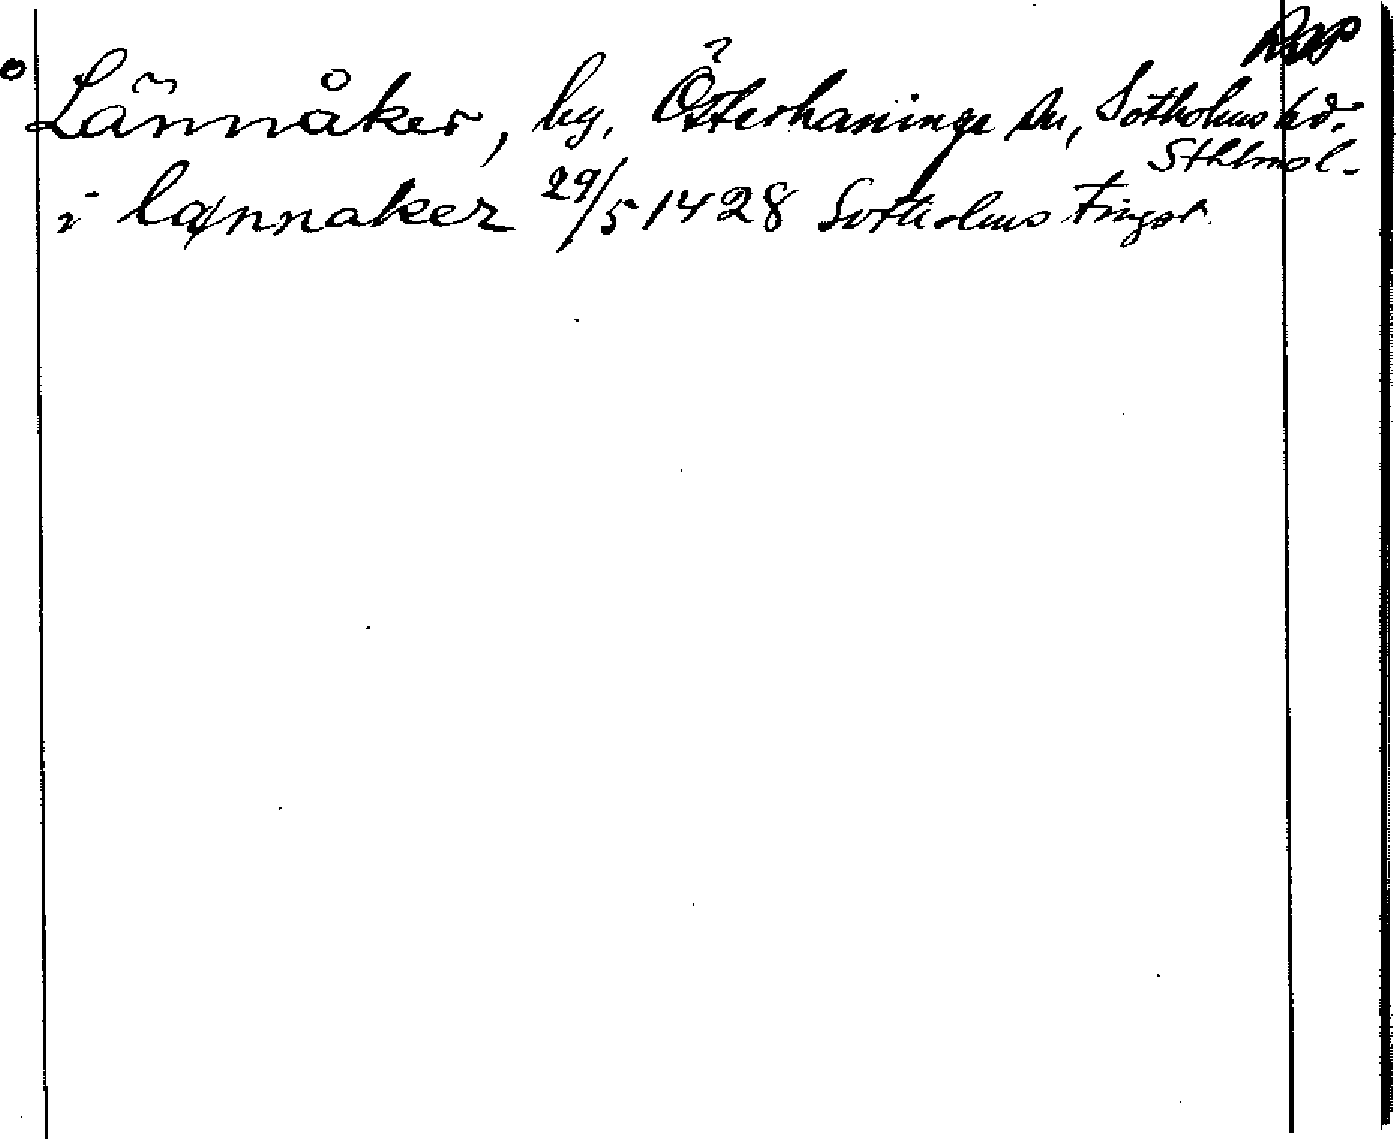 Lännåker, by, Österhaninge sn, Sotholms hd.
Sthlms l.
i lænnaker 29/5 1428 Sotholms tingsr.